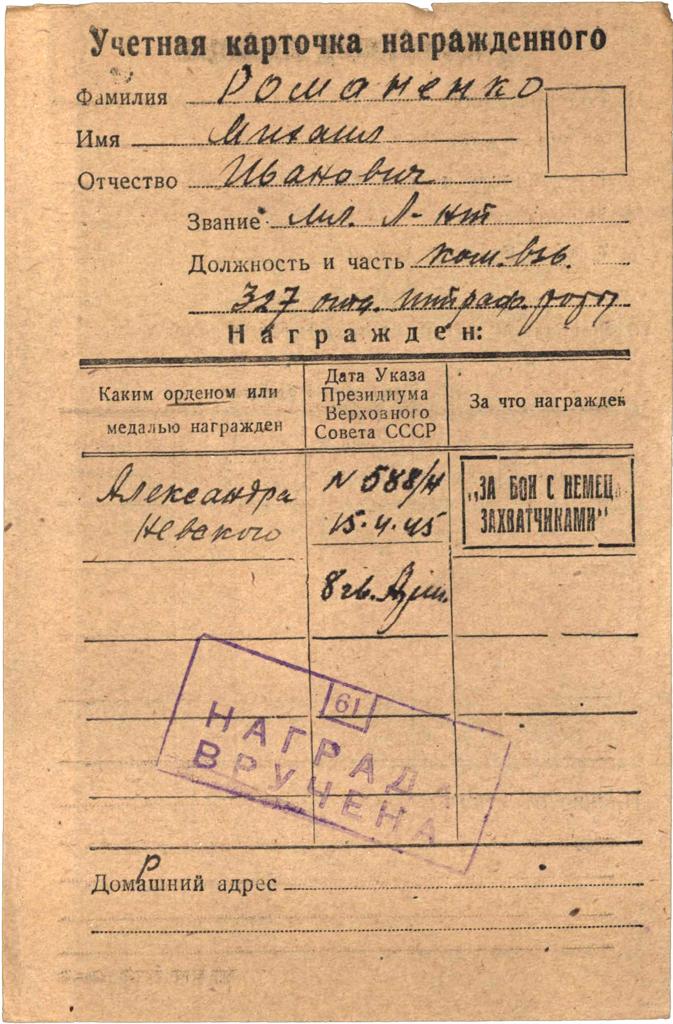 Учетная карточка награжденного
Фамилия Романенко
Имя Михаил
Отчество Иванович
Звание мл. л-нт
Должность и часть ком. взв.
327 отд. штраф. роты
Награжден:
Каким орденом или медалью награжден
Дата Указа Президиума Верховного Совета СССР
За что награжден
Александра Невского
N 588/н
15.4.45
8 гв. Арм.
„ЗА БОИ С НЕМЕЦ.
ЗАХВАТЧИКАМИ"
61
НАГРАДА
ВРУЧЕНА
Р
Домашний адрес